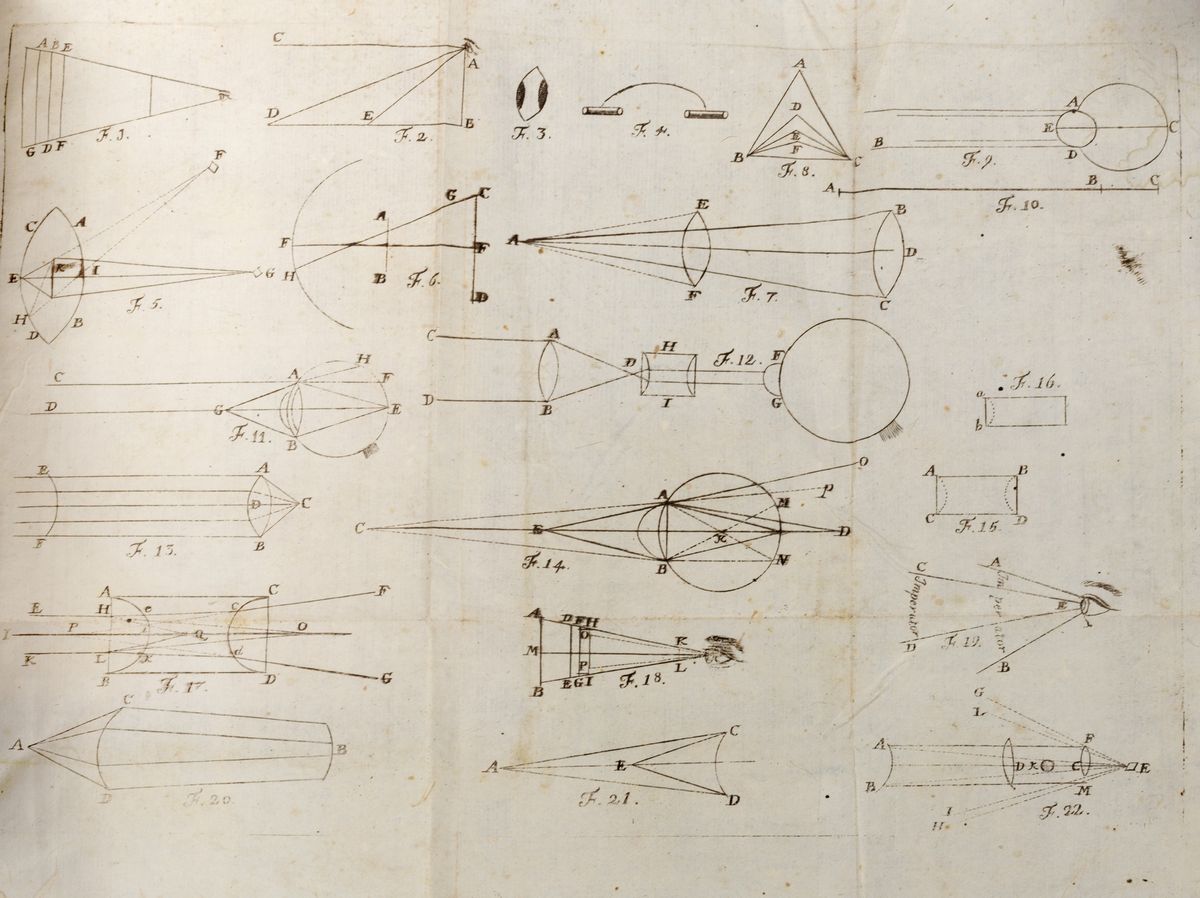 A B E
G D F
F. 1.
C
A
D
E
B
F. 2.
F. 3.
F. 4.
A
D
E
F
B
C
F. 8.
A
B
E
C
D
F. 9.
A
B
C
F. 10.
F
C
A
E
K
I
G
H
D
B
F. 5.
G C
A
F
F
H
B
D
F. 6.
A
E
B
D
F
C
F. 7.
C
A
D
H
D
B
I
F
G
F. 12.
C
A
H
F
D
G
E
B
F. 11.
F. 16.
a
b
E
A
D
C
F
B
F. 13.
O
A
P
M
C
E
K
D
B
N
F. 14.
A
B
C
D
F. 15.
A
C
F
H
e
c
E
I
P
Q
O
K
L
d
B
D
G
F. 17.
A
D F H
O
K
M
P
L
B
E G I
F. 18.
C
A
Imperator
Imperator
E
D
B
F. 19.
C
A
B
D
F. 20.
C
A
E
D
F. 21.
G
L
A
F
D K C
E
B
M
I
H
F. 22.